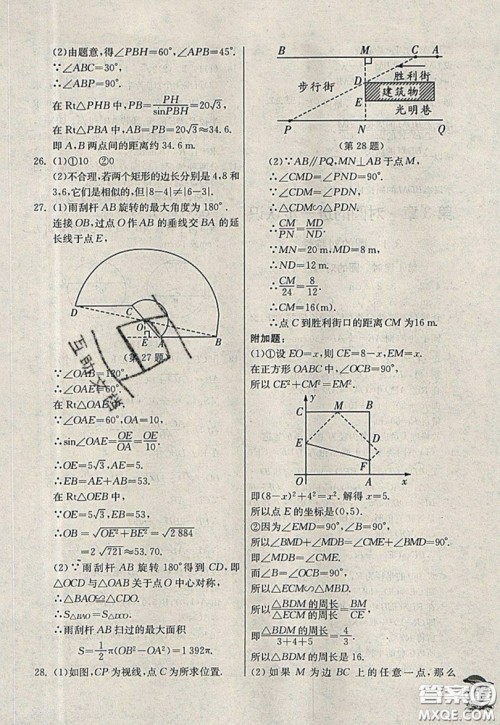 (2)由题意,得∠PBH=60°,∠APB=45°.
∵∠ABC=30°,
∴∠ABP=90°.
在Rt△PHB中,PB=PH/sinPBH=20√3,
在Rt△PBA中,AB=PB=20√3≈34.6.
答:A、B两点间的距离约34.6 m.
26. (1)①10 ②0
(2)不合理,若两个矩形的边长分别是4,8和
3,6,它们显然相似,但|8-4|≠|6-3|.
27. (1)雨刮杆AB旋转的最大角度为180°.
连接OB,过点O作AB的垂线交BA的延
长线于点E,
D
C
O
E
A
B
(第27题)
∵∠OAB=120°,
∴∠OAE=60°.
在Rt△OAE中,
∵∠OAE=60°,OA=10,
∴sin∠OAE=OE/OA=OE/10,
∴OE=5√3,AE=5.
∴EB=AE+AB=53.
在Rt△OEB中,
∵OE=5√3,EB=53,
∴OB=√(OE²+BE²)=√2 884
=2√721≈53.70.
(2)∵雨刮杆AB旋转180°得到CD,即
△OCD与△OAB关于点O中心对称,
∴△OAB≌△OCD.
∴S△BAO=S△OCD.
∴雨刮杆AB扫过的最大面积
S=1/2π(OB²-OA²)=1 392π.
28. (1)如图,CP为视线,点C为所求位置.
B M C A
胜利街
步行街
D
建筑物
E
光明巷
P N Q
(第28题)
(2)∵AB∥PQ,MN⊥AB于点M,
∴∠CMD=∠PND=90°.
又∵∠CDM=∠PDN,
∴△CDM∽△PDN,
∴CM/PN=MD/ND.
∵MN=20 m,MD=8 m,
∴ND=12 m.
∴CM/24=8/12.
∴CM=16(m).
∴点C到胜利街口的距离CM为16 m.
附加题:
(1)①设EO=x,则CE=8-x.
在正方形OABC中,因为∠C=90°,
所以CE²+CM²=EM².
y
C M B
E D
F
O A x
即(8-x)²+4²=x².解得x=5.
所以点E的坐标为(0,5).
②因为∠EMD=90°,
所以∠BMD+∠MDB=∠BMD+∠EMC.
即∠MDB=∠EMC.
而∠B=∠OCB=90°,
所以△ECM∽△MBD.
所以△BDM的周长/△ECM的周长=BM/CE.
即△BDM的周长/(3+4+5)=4/3.
所以△BDM的周长是16.
(2)如果M为边BC上的任意一点,那么
互助文档
答案圈
MXQE.COM